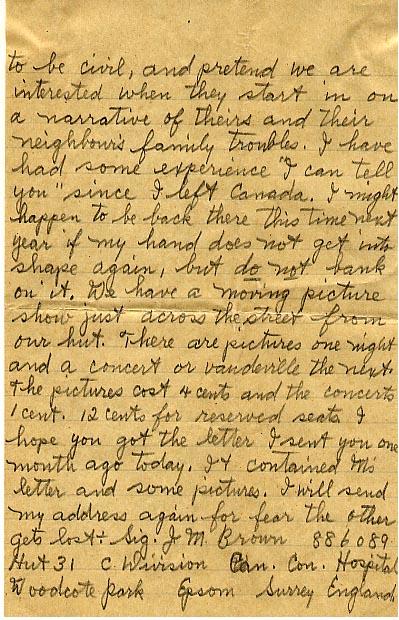 to be civil, and pretend we are
interested when they start in on
a narrative of theirs and their
neighbour's family troubles. I have
had some experience "I can tell
you" since I left Canada. I might
happen to be back there this time next
year if my hand does not get into
shape again, but do not bank
on it. We have a moving picture
show just across the street from
our hut. There are pictures one night
and a concert or vaudeville the next.
The pictures cost 4 cents and the concerts
1 cent. 12 cents for reserved seats I
hope you got the letter I sent you one
month ago today. It contained M's
letter and some pictures. I will send
my address again for fear the other
gets lost - Sig. J. M. Brown 886089.
Hut 31 C Division Can. Con. Hospital
Woodcote Park Epsom Surrey England.